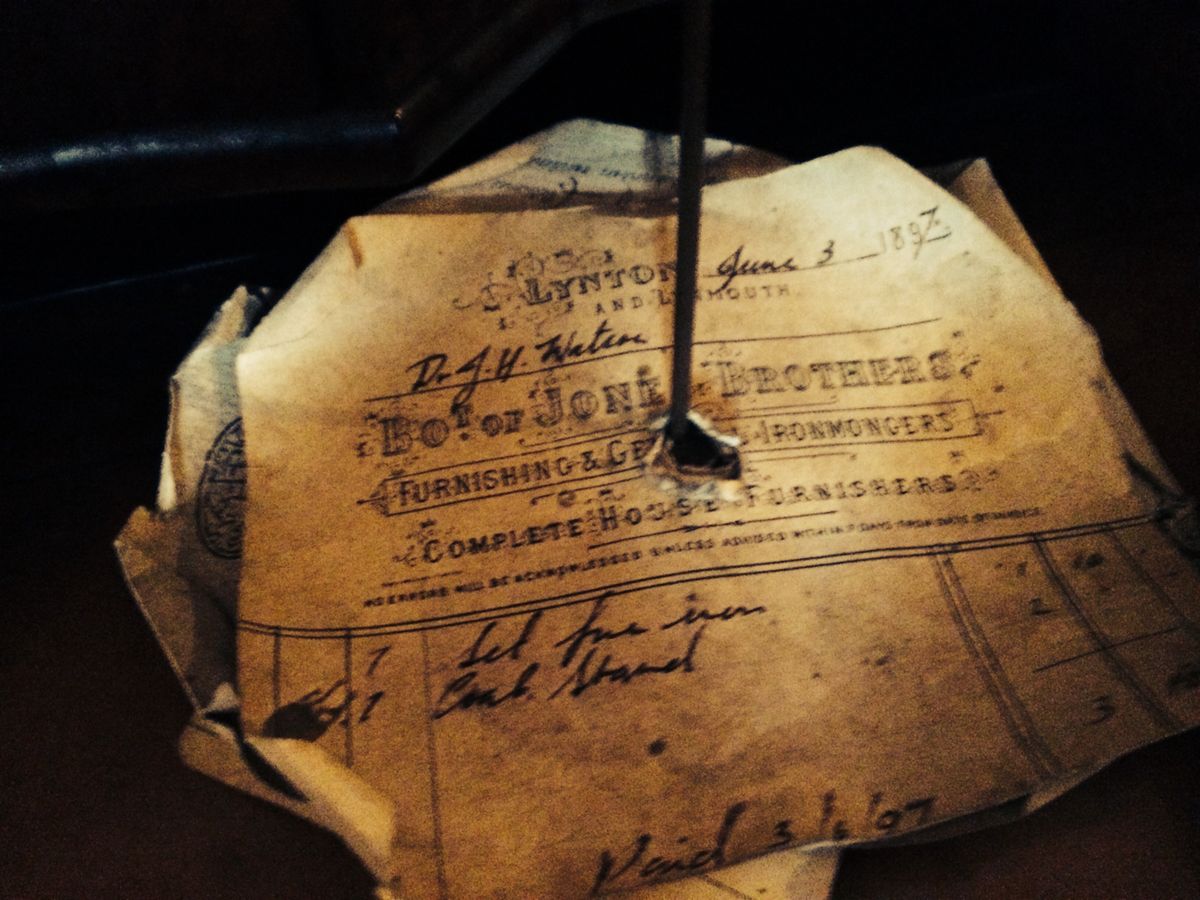 LYNTON June 3 1897
AND LYNMOUTH.
Dr J. H. Watson
BOT OF JONE BROTHERS
FURNISHING & GE IRONMONGERS
COMPLETE HOUSE FURNISHERS
NO ERRORS WILL BE ACKNOWLEDGED UNLESS ADVISED WITHIN 7 DAYS FROM DATE OF INVOICE
7 Set fire iron
7 Stand
2
3
Paid 3/6/07